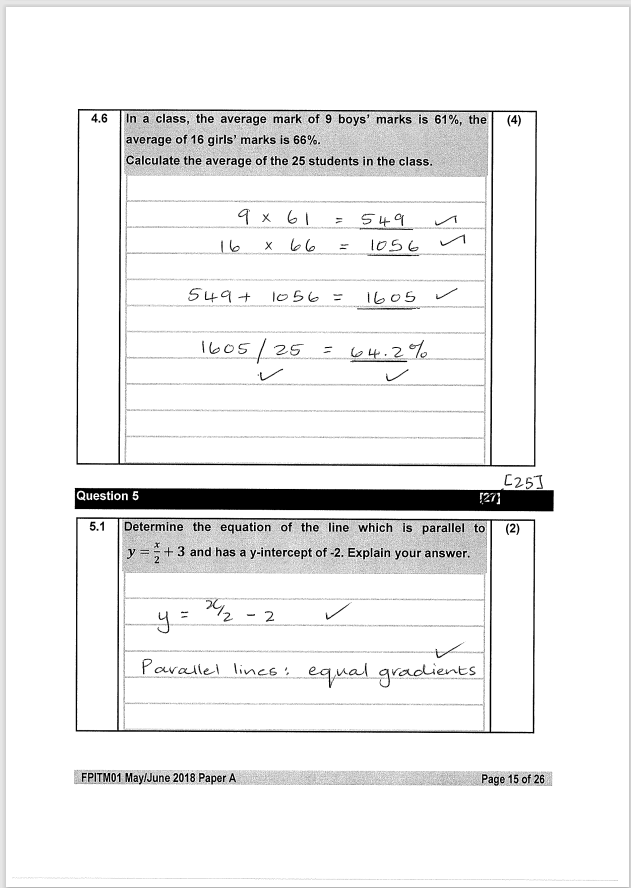 4.6 In a class, the average mark of 9 boys' marks is 61%, the (4)
average of 16 girls' marks is 66%.
Calculate the average of the 25 students in the class.
9 x 61 = 549 ✓
16 x 66 = 1056 ✓
549 + 1056 = 1605 ✓
1605 / 25 = 64.2%
✓ ✓
[25]
Question 5 [27]
5.1 Determine the equation of the line which is parallel to (2)
y = x/2 + 3 and has a y-intercept of -2. Explain your answer.
y = x/2 - 2 ✓
✓
Parallel lines: equal gradients
FPITM01 May/June 2018 Paper A Page 15 of 26